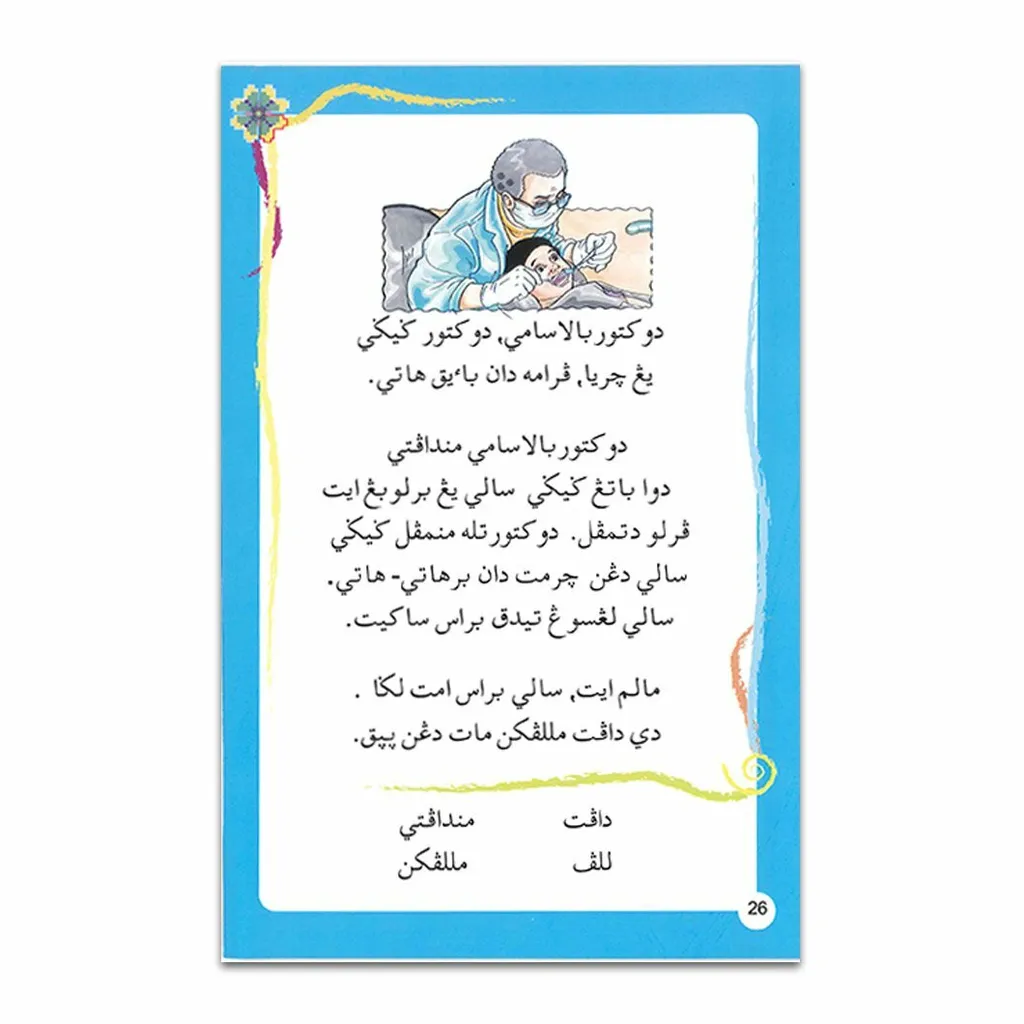 دوکتور بالاسامي, دوکتور ݢيݢي
يڠ چريا, ڤرامه دان باءيق هاتي.
دوکتور بالاسامي منداڤتي
دوا باتڠ ݢيݢي سالي يڠ برلوبڠ ايت
ڤرلو دتمڤل. دوکتور تله منمڤل ݢيݢي
سالي دڠن چرمت دان برهاتي- هاتي.
سالي لڠسوڠ تيدق براس ساکيت.
مالم ايت, سالي براس امت لݢا .
دي داڤت مللڤکن مات دڠن ڽڽق.
داڤت منداڤتي
للڤ مللڤکن
26